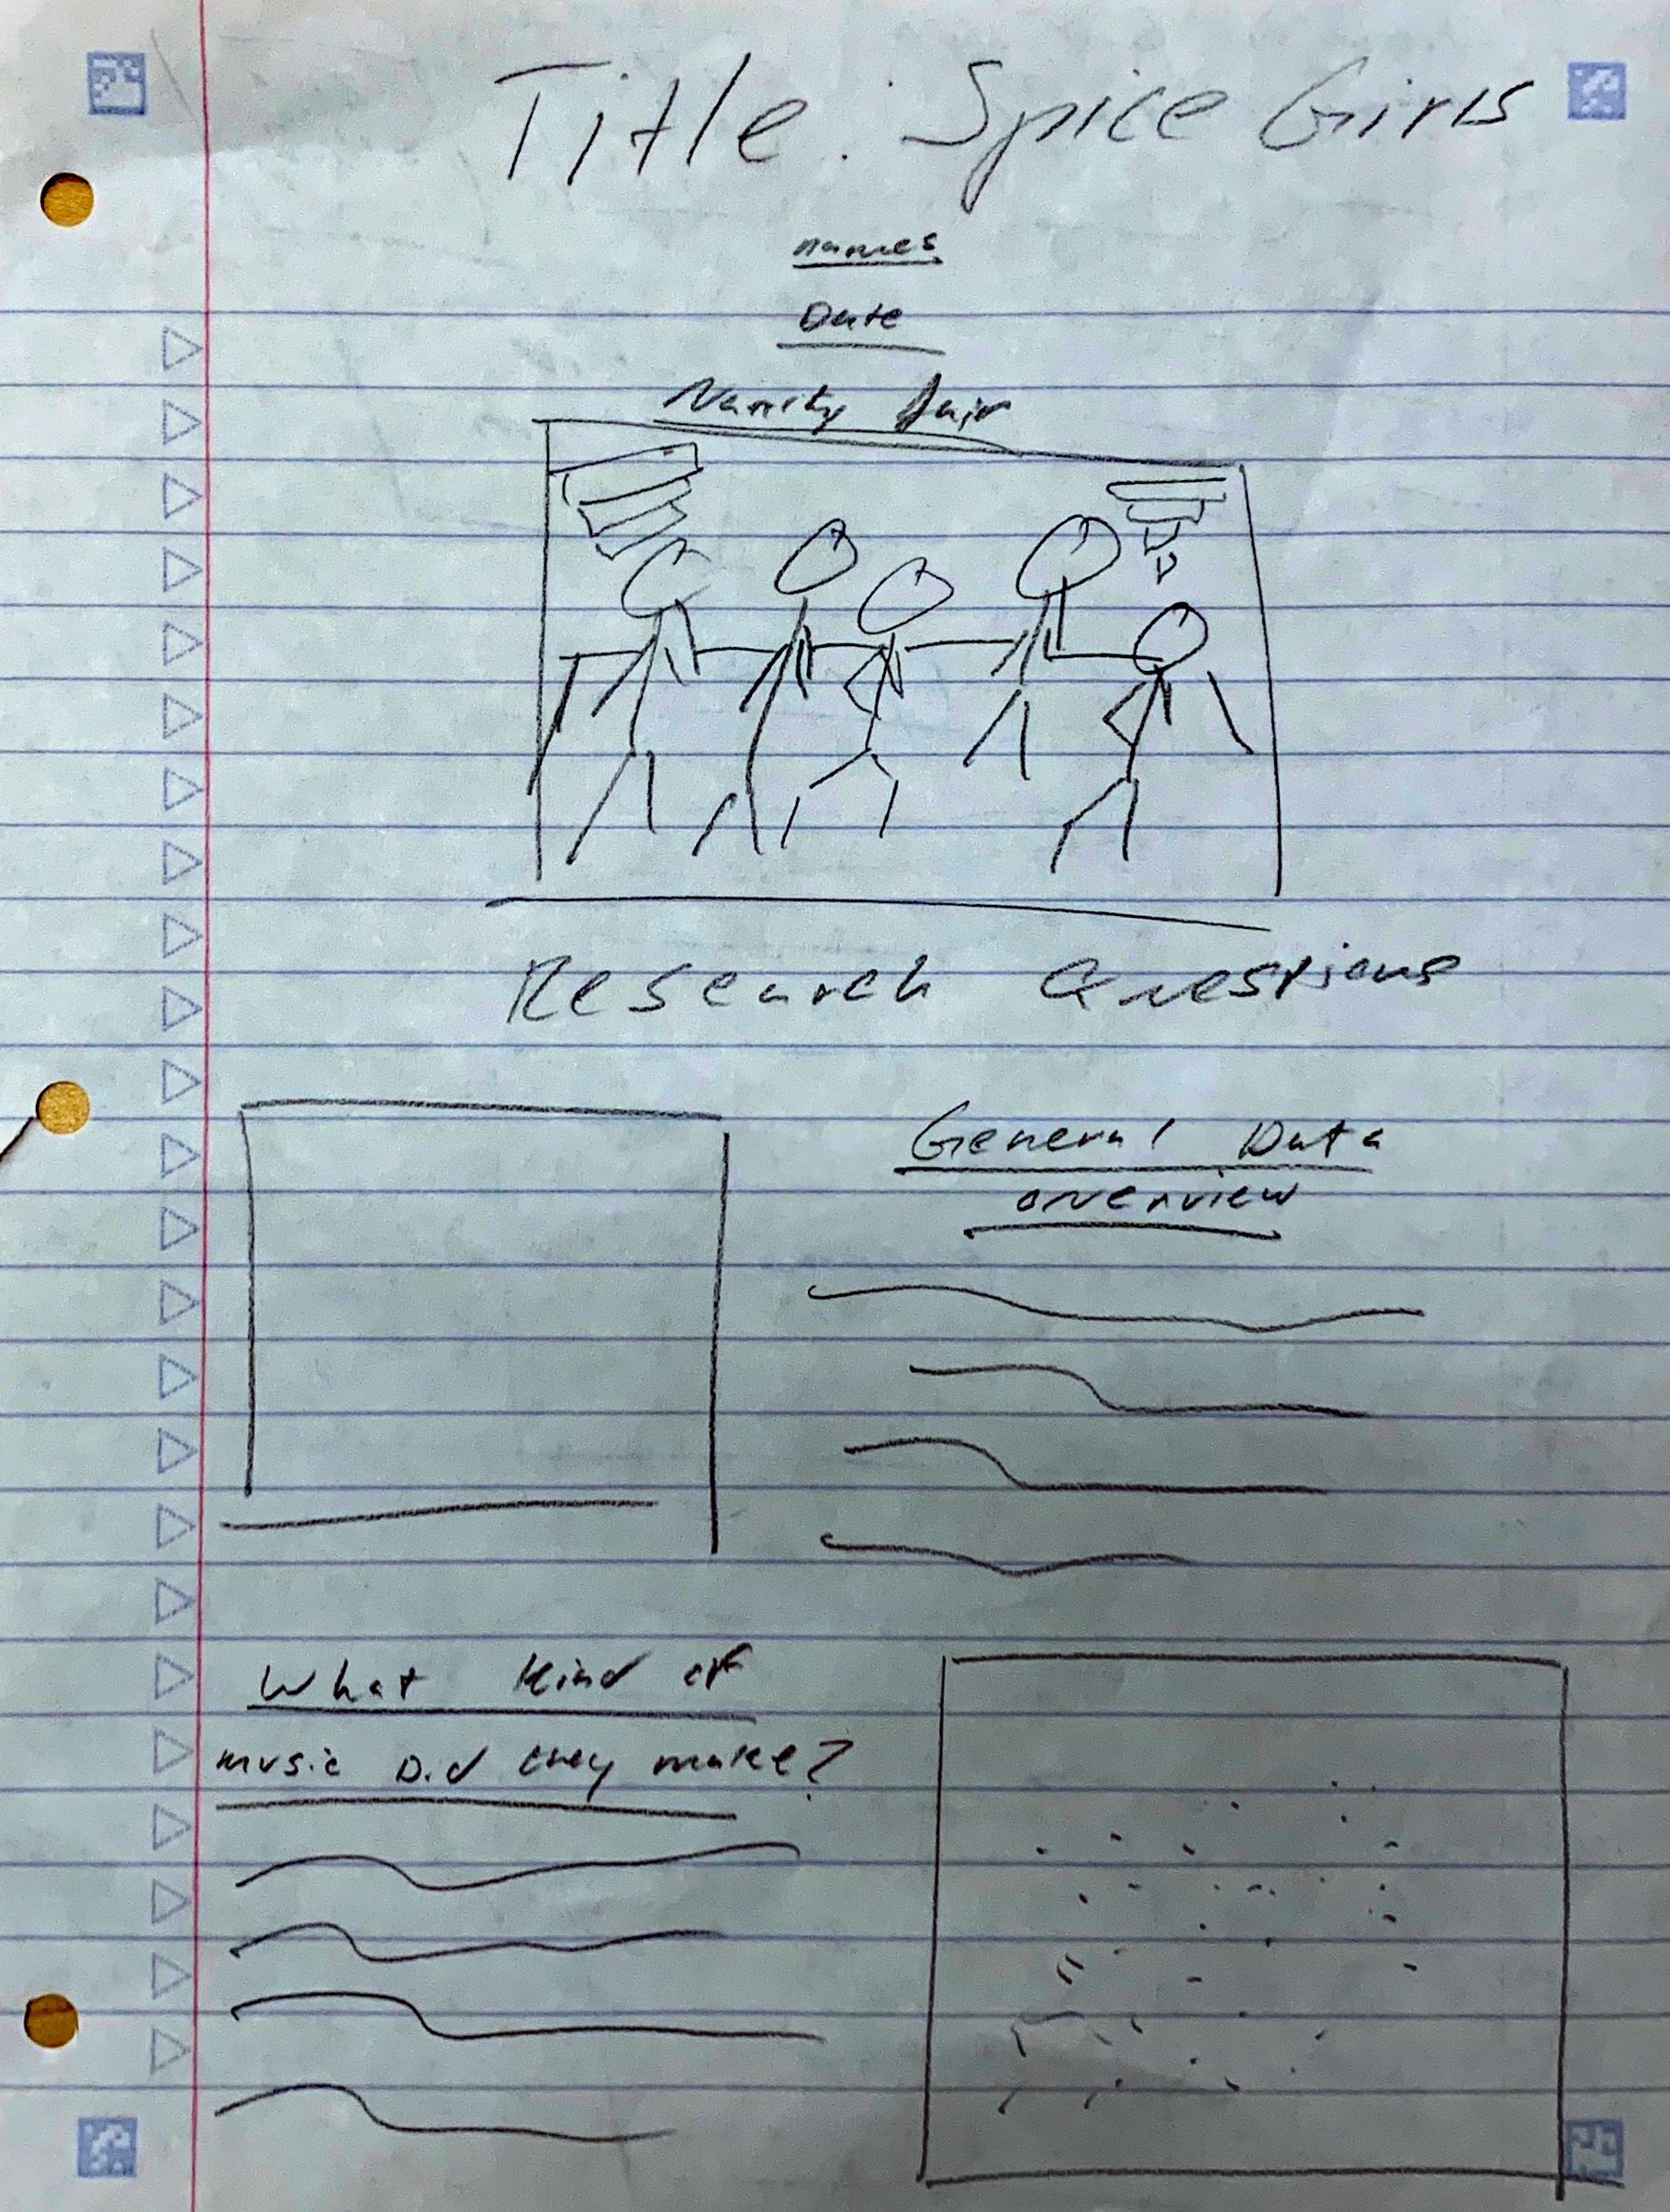 Title: Spice Girls
names
Date
Vanity fair
Research Questions
General Data
overview
What Kind of
music Did they make?